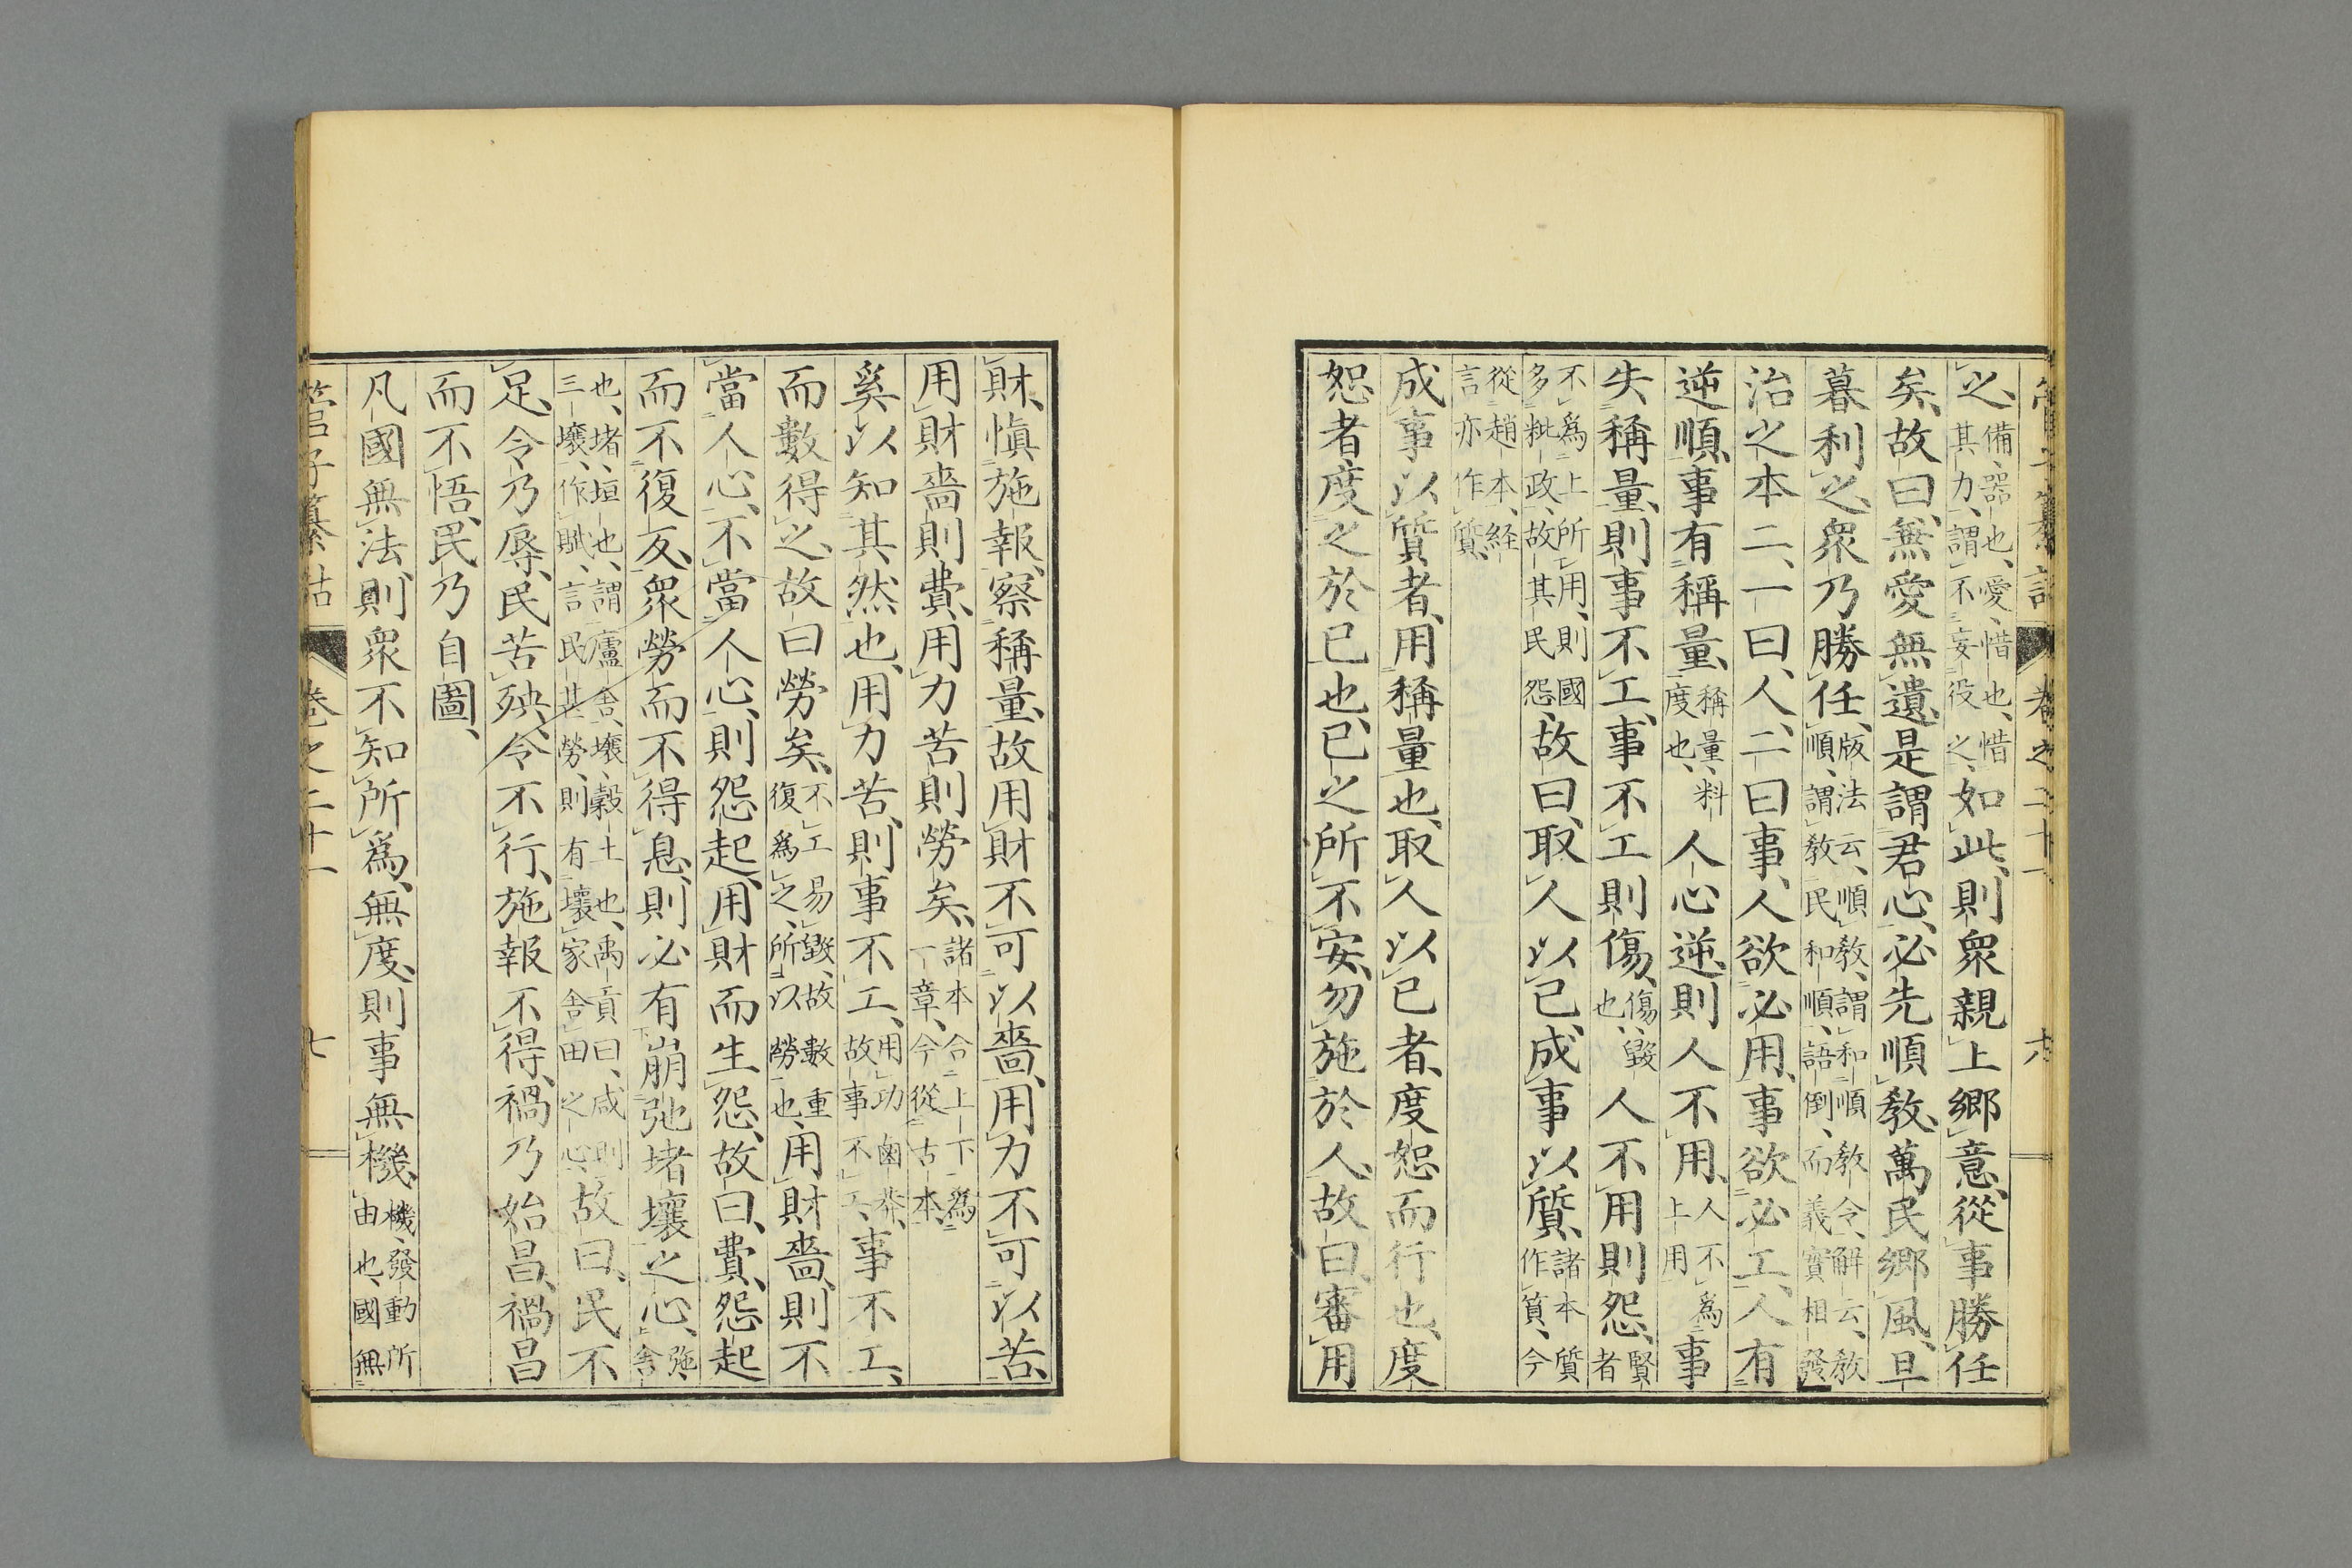 管子纂詁 卷之二十一 六
之、備、器也、愛、惜也、惜其力、謂不妄役之、如此、則衆親上鄉意、從事勝任
矣、故曰、無愛無遺、是謂君心、必先順教、萬民鄉風、旦
暮利之、衆乃勝任、版法云、順教、謂和順教令、解云、教順、謂教民和順、語倒、而義實相發
治之本二、一曰、人、二曰事、人欲必用、事欲必工、人有
逆順、事有稱量、稱量、料度也、人心逆、則人不用、人不爲上用事
失稱量、則事不工、事不工則傷、傷、毀也、人不用則怨、賢者
不爲上所用、則國多粃政、故其民怨、故曰、取人以己、成事以質、諸本質作質、今
從趙本、經言亦作質、
成事以質者、用稱量也、取人以己者、度恕而行也、度
恕者、度之於己也、己之所不安、勿施於人、故曰、審用
財、愼施報、察稱量、故用財不可以嗇、用力不可以苦、
用財嗇則費、用力苦則勞矣、諸本合上下爲一章、今從古本、
奚以知其然也、用力苦、則事不工、用功鹵莽、故事不工、事不工、
而數得之、故曰勞矣、不工易毀、故數重復爲之、所以勞也、用財嗇、則不
當人心、不當人心、則怨起、用財而生怨、故曰、費、怨起
而不復反、衆勞而不得息、則必有崩弛堵壞之心、弛、舍
也、堵、垣也、謂廬舍、壤、穀土也、禹貢曰、咸則三壤、作賦、言民甚勞、則有壞家舍田之心、故曰、民不
足、令乃辱、民苦殃、令不行、施報不得、禍乃始昌、禍昌
而不悟、民乃自圖、
凡國無法、則衆不知所爲、無度、則事無機、機、發動所由也、國無
管子纂詁 卷之二十一 七